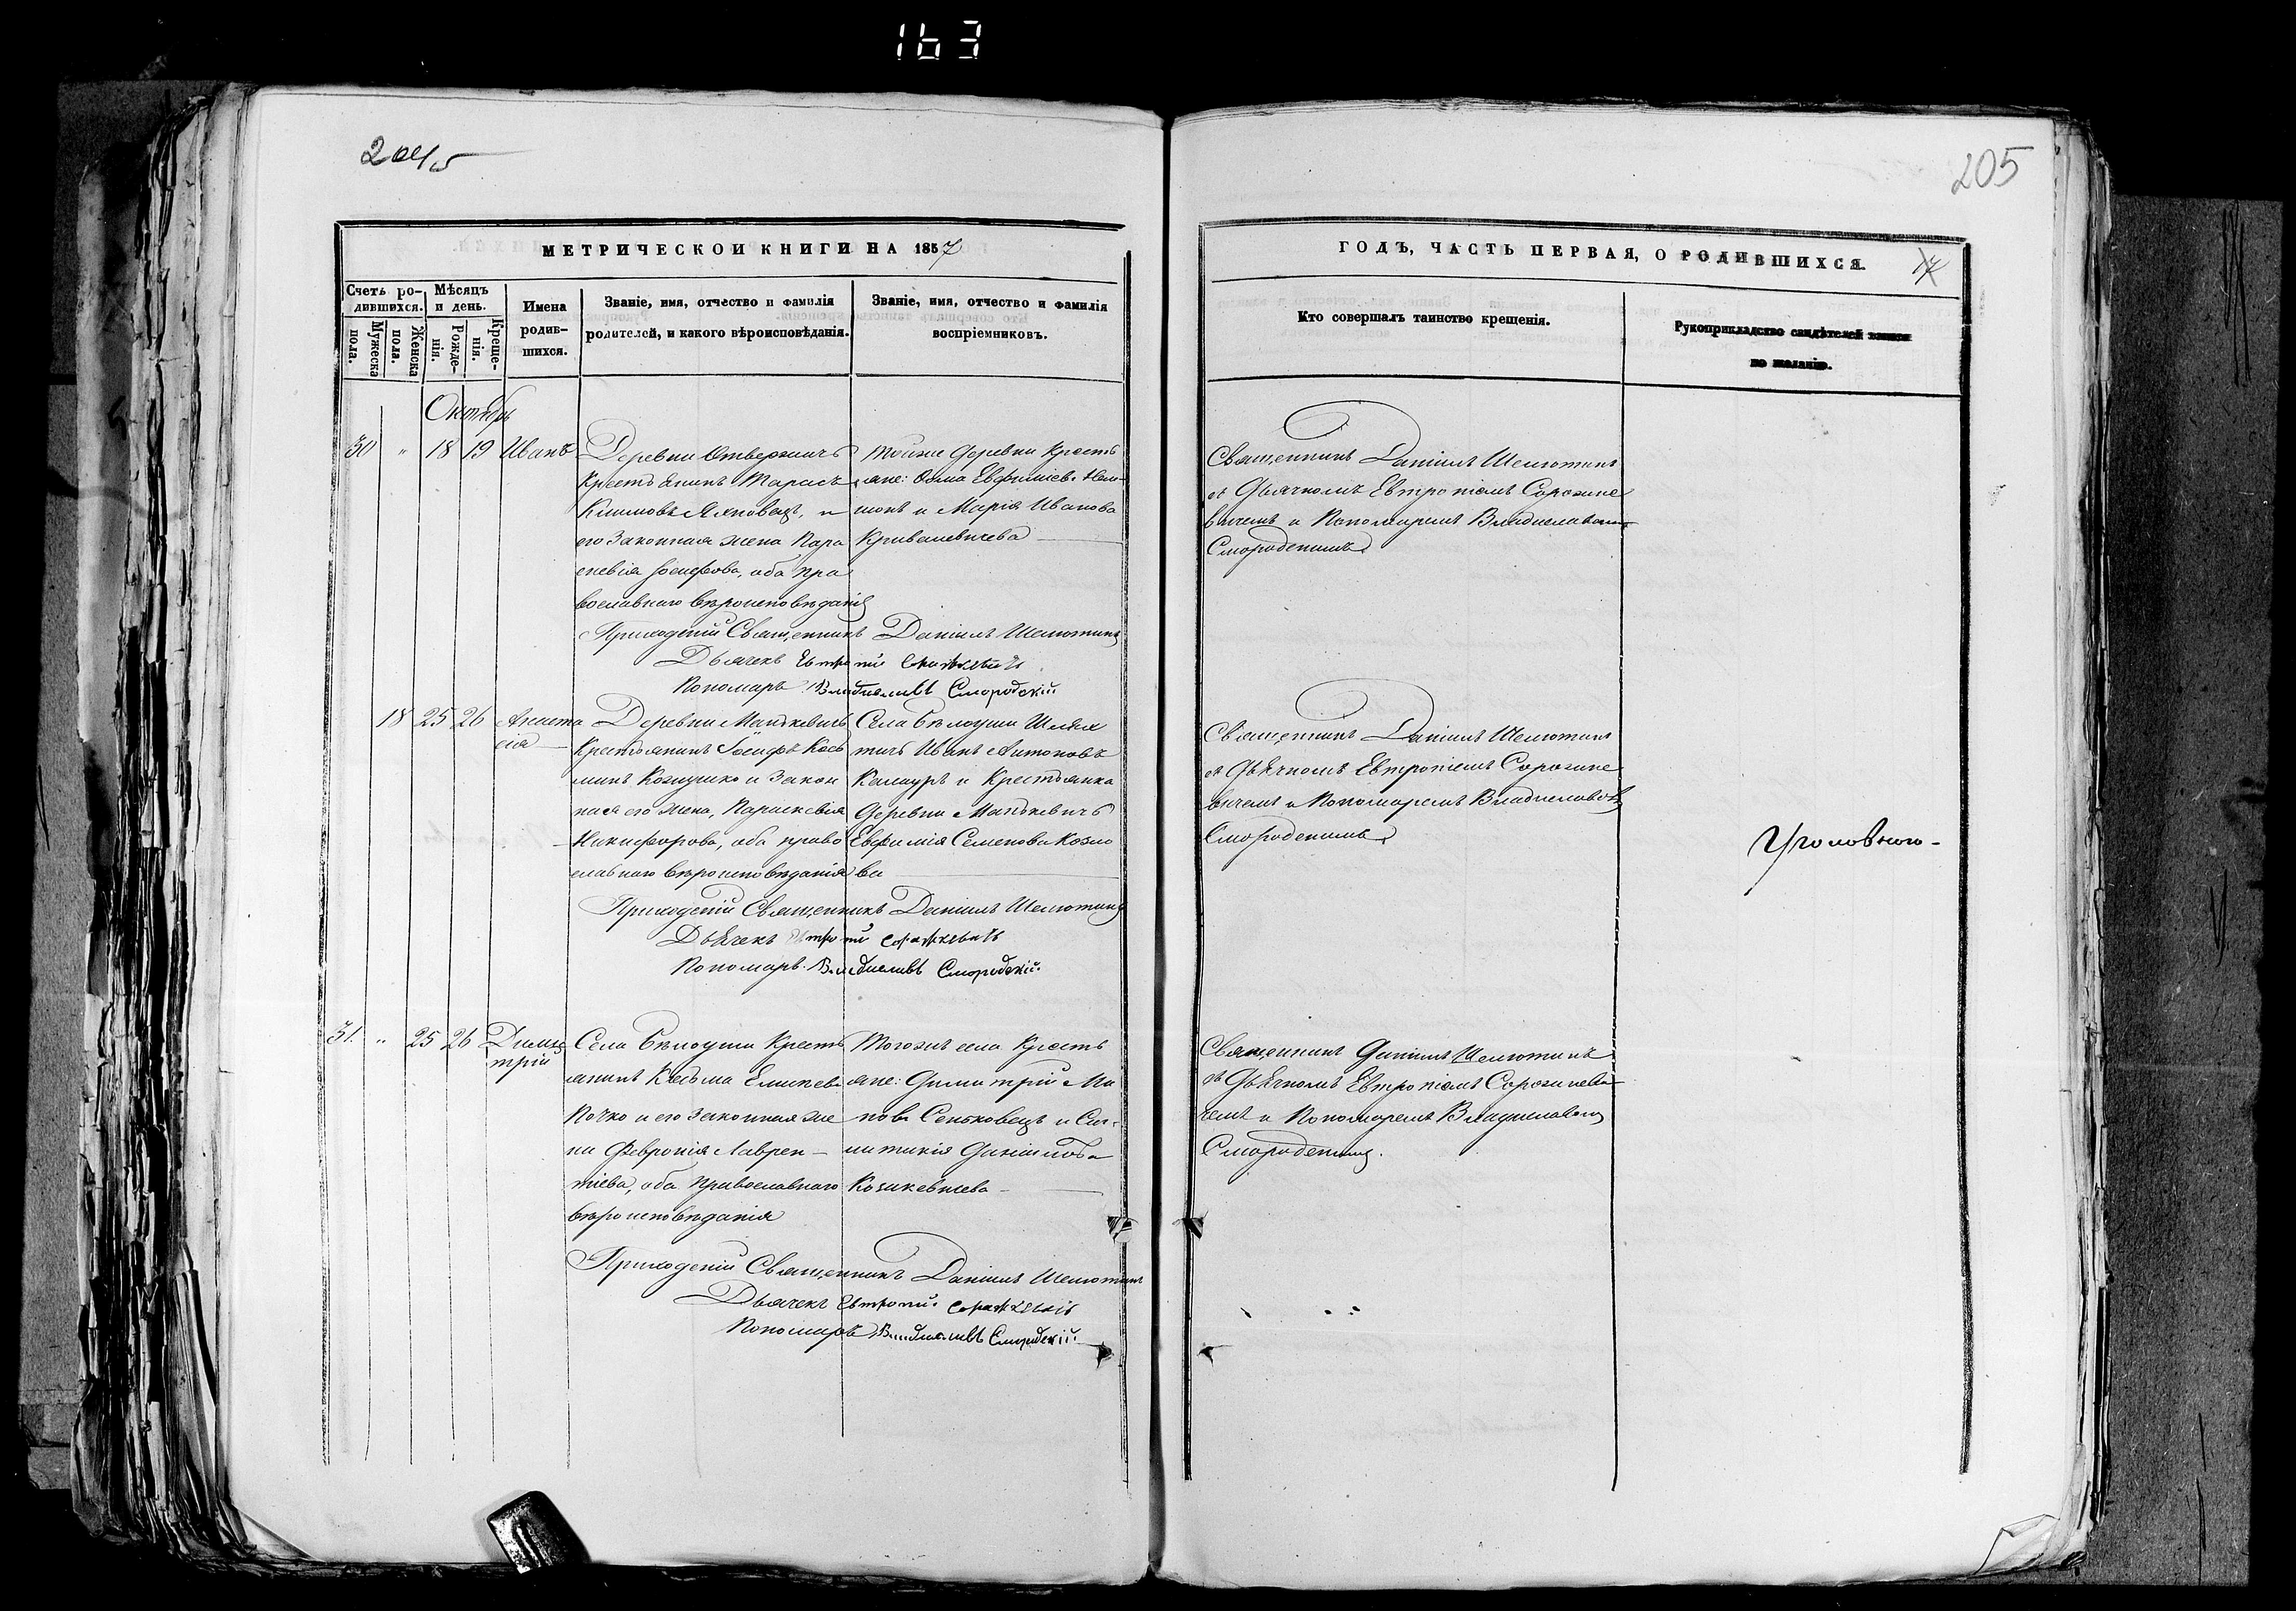 163
205
МЕТРИЧЕСКОЙ КНИГИ НА 1857
ГОДЪ, ЧАСТЬ ПЕРВАЯ, О РОДИВШИХСЯ.
Счетъ ро-
дившихся.
Мужеска
пола.
Женска
пола.
Мѣсяцъ
и день.
Рожде-
нія.
Креще-
нія.
Имена
родив-
шихся.
Званіе, имя, отчество и фамилія
родителей, и какого вѣроисповѣданія.
Званіе, имя, отчество и фамилія
воспріемниковъ.
Кто совершалъ таинство крещенія.
Рукоприкладство свидѣтелей записи
по желанію.
Октябрь
30 " 18 19 Иванъ
Деревни Отвержичъ
Крестьянинъ Тарасъ
Климовъ Яхновецъ, и
его законная жена Пара
скевія Іосифова, оба пра
вославнаго вѣроисповѣданія
Тойже деревни Кресть
яне: Ѳома Евфиміевъ
и Марія Иванова
Кривалевичева
Священникъ Даніилъ Шелютинъ
съ Дьячкомъ Евтропіемъ Сорочине
вичемъ и Пономаремъ Владиславомъ
Смородскимъ
Приходскій Священникъ Даніилъ Шелютинъ
Дьячекъ Евтропій
Пономарь Владиславъ Смородскій
18 25 26 Анаста
сія
Деревни Манькевичъ
Крестьянинъ Іосифъ Кось
минъ Козушко и Закон
ная его жена, Параскевія
Никифорова, оба право
славнаго вѣроисповѣданія
Села Бѣлоуши Шлях
тичъ Иванъ Антоновъ
Калауръ и Крестьянка
деревни Манькевичъ
Евфимія Семенова Козло
ва
Священникъ Даніилъ Шелютинъ
съ Дьячкомъ Евтропіемъ Сорочине
вичемъ и Пономаремъ Владиславомъ
Смородскимъ
Уголовного
Приходскій Священникъ Даніилъ Шелютинъ
Дьячекъ Евтропій
Пономарь Владиславъ Смородскій
31. " 25 26 Дими
трій
Села Бѣлоуши Кресть
янинъ Козьма
Почко и его законная же
на Февронія Лаврен-
тіева, оба православнаго
вѣроисповѣданія
Тогоже села Кресть
яне: Димитрій Ма
новъ Сеньковецъ и Син-
клитикія Даніилова
Козакевичева
Священникъ Даніилъ Шелютинъ
съ Дьячкомъ Евтропіемъ Сорочиневи
чемъ и Пономаремъ Владиславомъ
Смородскимъ.
Приходскій Священникъ Даніилъ Шелютинъ
Дьячекъ Евтропій
Пономарь Владиславъ Смородскій